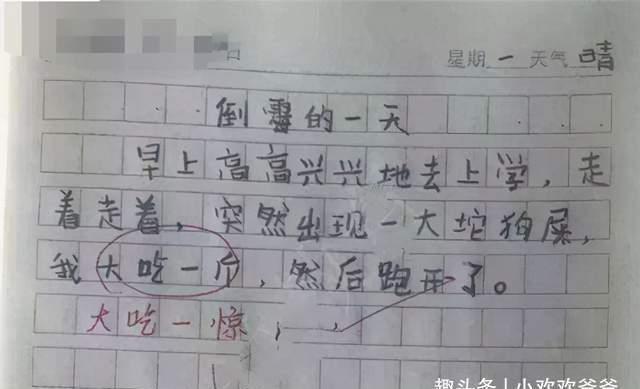 日 星期 一 天气 晴
倒霉的一天
早上高高兴兴地去上学，走
着走着，突然出现一大坨狗屎，
我大吃一斤，然后跑开了。
大吃一惊，
趣头条 | 小欢欢爷爷